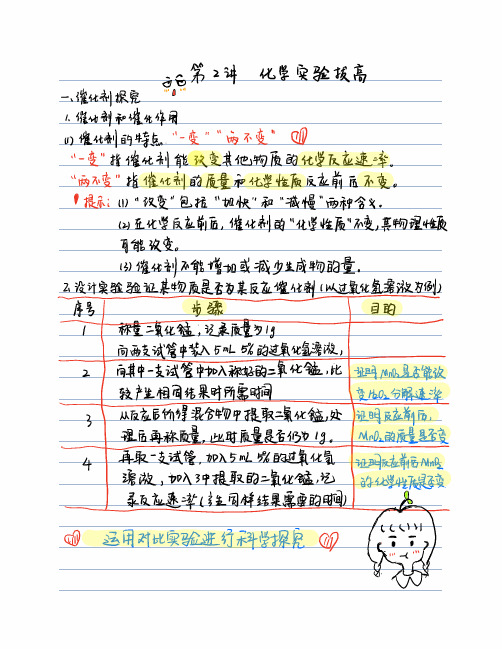 第2讲 化学实验拔高
一、催化剂探究
1. 催化剂和催化作用
(1) 催化剂的特点 "一变""两不变"
"一变"指催化剂能改变其他物质的化学反应速率。
"两不变"指催化剂的质量和化学性质反应前后不变。
提示: (1) "改变"包括"加快"和"减慢"两种含义。
(2) 在化学反应前后,催化剂的"化学性质"不变,其物理性质
可能改变。
(3) 催化剂不能增加或减少生成物的量。
2. 设计实验验证某物质是否为某反应催化剂(以过氧化氢溶液为例)
序号 步骤 目的
1 称量二氧化锰,记录质量为1g
向两支试管中装入5mL 5%的过氧化氢溶液,
2 向其中一支试管中加入称好的二氧化锰,比
较产生相同结果时所需时间
证明MnO₂是否能改
变H₂O₂分解速率
3 从反应后的混合物中提取二氧化锰,处
理后再称质量,比对质量是否仍为1g。
证明反应前后,
MnO₂的质量是否变
4 再取一支试管,加入5mL 5%的过氧化氢
溶液,加入3中提取的二氧化锰,记
录反应速率(产生同样结果需要的时间)
证明反应前后MnO₂
的化学性质是否变
运用对比实验进行科学探究